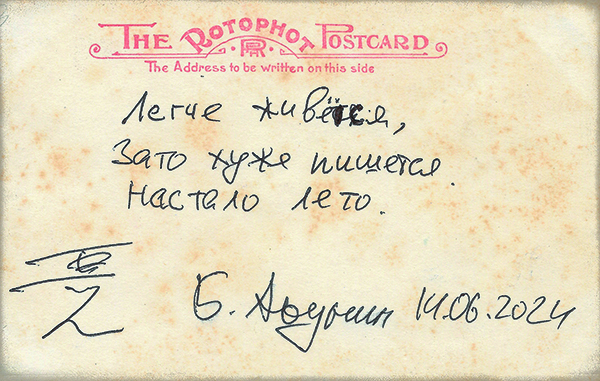 THE ROTOPHOT POSTCARD
The Address to be written on this side
Легче живётся,
Зато хуже пишется.
Настало лето.
Б. Акунин 14.06.2024